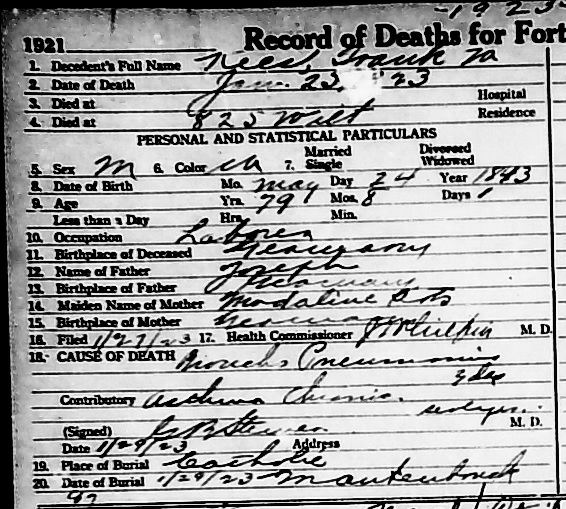 -1923-
1921 Record of Deaths for Fort
1. Decedent's Full Name Nees, Frank
2. Date of Death Jan. 23, 23
3. Died at Hospital
4. Died at 825 Wilt Residence
PERSONAL AND STATISTICAL PARTICULARS
5. Sex M 6. Color W 7. Married Single Divorced Widowed
8. Date of Birth Mo. May Day 24 Year 1843
9. Age Yrs. 79 Mos. 8 Days
Less than a Day Hrs. Min.
10. Occupation Laborer
11. Birthplace of Deceased Germany
12. Name of Father Joseph
13. Birthplace of Father Germany
14. Maiden Name of Mother Madaline
15. Birthplace of Mother Germany
16. Filed 1/27/23 17. Health Commissioner M. D.
18. CAUSE OF DEATH Broncho Pneumonia
3 das
Contributory Asthma Chronic.
(Signed) M. D.
Date 1/24/23 Address
19. Place of Burial Catholic
20. Date of Burial 1/26/23